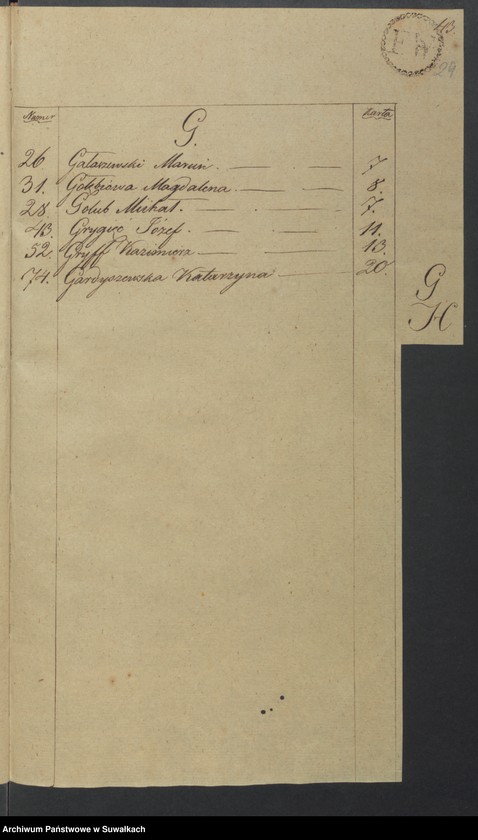 29
Numer
Karta
G.
26 Gałaszewski Marcin. 7
31. Gołębiowa Magdalena. 8.
28. Golub Michał. 7.
43. Gryguć Józef. 11.
52. Gryff Kazimierz 13.
74. Gardyszewska Katarzyna 20.
G
H
Archiwum Państwowe w Suwałkach